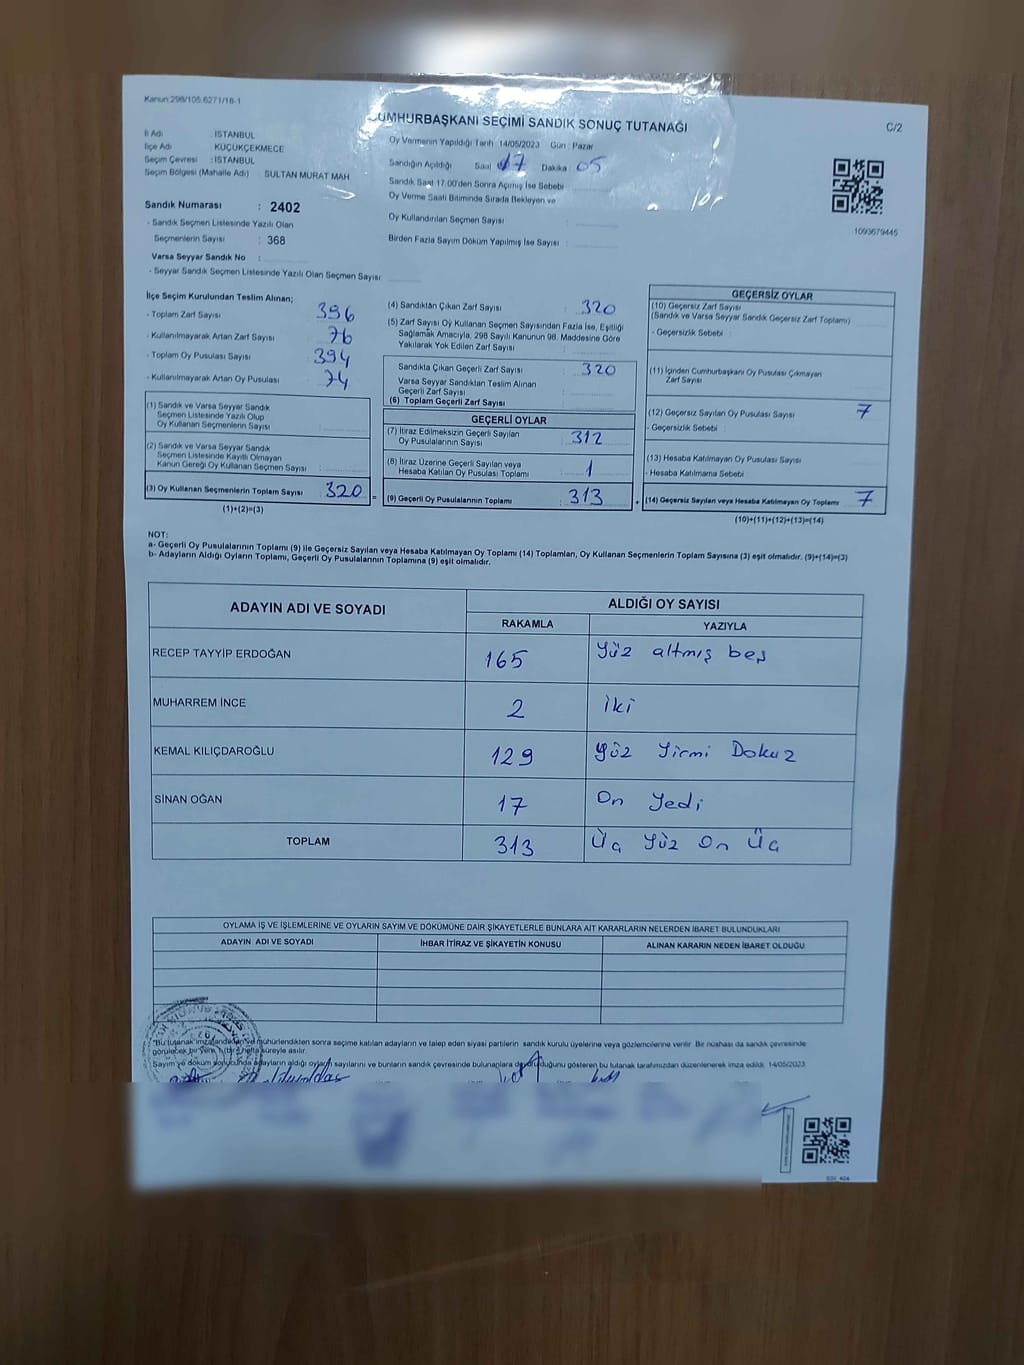 Kanun:298/105;6271/18-1
CUMHURBAŞKANI SEÇİMİ SANDIK SONUÇ TUTANAĞI
C/2
İl Adı : İSTANBUL
İlçe Adı KÜÇÜKÇEKMECE
Seçim Çevresi : İSTANBUL
Seçim Bölgesi (Mahalle Adı) SULTAN MURAT MAH
Oy Vermenin Yapıldığı Tarih 14/05/2023 Gün : Pazar
Sandığın Açıldığı Saat 17 Dakika 05
Sandık Saat 17.00'den Sonra Açılmış İse Sebebi
Oy Verme Saati Bitiminde Sırada Bekleyen ve
Oy Kullandırılan Seçmen Sayısı :
Birden Fazla Sayım Döküm Yapılmış İse Sayısı :
1093679445
Sandık Numarası : 2402
- Sandık Seçmen Listesinde Yazılı Olan
Seçmenlerin Sayısı : 368
Varsa Seyyar Sandık No :
- Seyyar Sandık Seçmen Listesinde Yazılı Olan Seçmen Sayısı:
İlçe Seçim Kurulundan Teslim Alınan;
- Toplam Zarf Sayısı 396
- Kullanılmayarak Artan Zarf Sayısı 76
- Toplam Oy Pusulası Sayısı 394
- Kullanılmayarak Artan Oy Pusulası 74
(1) Sandık ve Varsa Seyyar Sandık
Seçmen Listesinde Yazılı Olup
Oy Kullanan Seçmenlerin Sayısı :
(2) Sandık ve Varsa Seyyar Sandık
Seçmen Listesinde Kayıtlı Olmayan
Kanun Gereği Oy Kullanan Seçmen Sayısı :
(3) Oy Kullanan Seçmenlerin Toplam Sayısı 320 =
(1)+(2)=(3)
(4) Sandıktan Çıkan Zarf Sayısı : 320
(5) Zarf Sayısı Oy Kullanan Seçmen Sayısından Fazla İse, Eşitliği
Sağlamak Amacıyla, 298 Sayılı Kanunun 98. Maddesine Göre
Yakılarak Yok Edilen Zarf Sayısı :
Sandıkta Çıkan Geçerli Zarf Sayısı : 320
Varsa Seyyar Sandıklardan Teslim Alınan
Geçerli Zarf Sayısı :
(6) Toplam Geçerli Zarf Sayısı :
GEÇERLİ OYLAR
(7) İtiraz Edilmeksizin Geçerli Sayılan
Oy Pusulalarının Sayısı : 312
(8) İtiraz Üzerine Geçerli Sayılan veya
Hesaba Katılan Oy Pusulası Toplamı 1
(9) Geçerli Oy Pusulalarının Toplamı : 313 +
GEÇERSİZ OYLAR
(10) Geçersiz Zarf Sayısı
(Sandık ve Varsa Seyyar Sandık Geçersiz Zarf Toplamı)
- Geçersizlik Sebebi :
(11) İçinden Cumhurbaşkanı Oy Pusulası Çıkmayan
Zarf Sayısı
(12) Geçersiz Sayılan Oy Pusulası Sayısı : 7
- Geçersizlik Sebebi :
(13) Hesaba Katılmayan Oy Pusulası Sayısı
- Hesaba Katılmama Sebebi :
(14) Geçersiz Sayılan veya Hesaba Katılmayan Oy Toplamı 7
(10)+(11)+(12)+(13)=(14)
NOT:
a- Geçerli Oy Pusulalarının Toplamı (9) ile Geçersiz Sayılan veya Hesaba Katılmayan Oy Toplamı (14) Toplamları, Oy Kullanan Seçmenlerin Toplam Sayısına (3) eşit olmalıdır. (9)+(14)=(3)
b- Adayların Aldığı Oyların Toplamı, Geçerli Oy Pusulalarının Toplamına (9) eşit olmalıdır.
ADAYIN ADI VE SOYADI ALDIĞI OY SAYISI
RAKAMLA YAZIYLA
RECEP TAYYİP ERDOĞAN 165 Yüz altmış beş
MUHARREM İNCE 2 iki
KEMAL KILIÇDAROĞLU 129 Yüz Yirmi Dokuz
SİNAN OĞAN 17 On Yedi
TOPLAM 313 Üç Yüz On Üç
OYLAMA İŞ VE İŞLEMLERİNE VE OYLARIN SAYIM VE DÖKÜMÜNE DAİR ŞİKAYETLERLE BUNLARA AİT KARARLARIN NELERDEN İBARET BULUNDUKLARI
ADAYIN ADI VE SOYADI İHBAR İTİRAZ VE ŞİKAYETİN KONUSU ALINAN KARARIN NEDEN İBARET OLDUĞU
Bu tutanak imzalandıktan ve mühürlendikten sonra seçime katılan adayların ve talep eden siyasi partilerin sandık kurulu üyelerine veya gözlemcilerine verilir. Bir nüshası da sandık çevresinde
görülecek bir yere 1 (bir) hafta süreyle asılır.
Sayım ve döküm sonucunda adayların aldığı oyların sayılarını ve bunların sandık çevresinde bulunanlara duyurulduğunu gösteren bu tutanak tarafımızdan düzenlenerek imza edildi. 14/05/2023